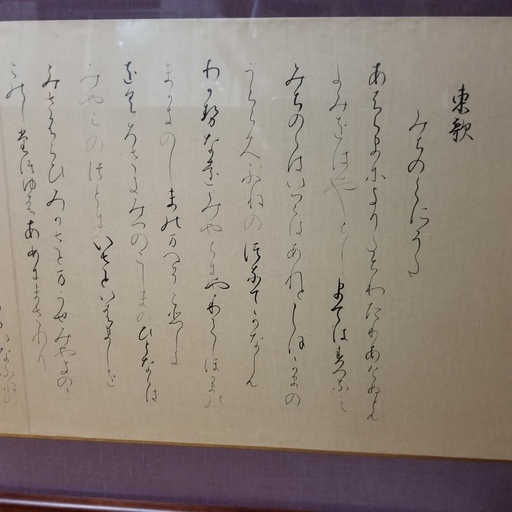 東歌
みちのくにうた
あふくまにきりたちわたりあけぬとも
きみをはやらしまてはすへなし
みちのくはいつくはあれとしほかまの
うらこくふねのつなてかなしも
わかせこをみやこにやりてしほかまの
まかきのしまのまつそこひしき
をくろさきみつのこしまのひとならは
みやこのつとにいさといはましを
みさふらひみかさとまうせみやきのの
このしたつゆはあめにまされり